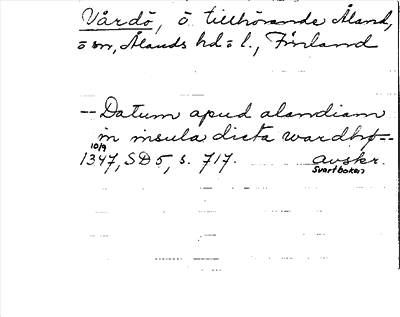 Vårdö, ö tillhörande Åland,
ö sn, Ålands hd o l., Finland
-- Datum apud alandiam
in insula dicta wardhø --
10/9
1347, SD 5, s. 717. avskr.
Svartboken